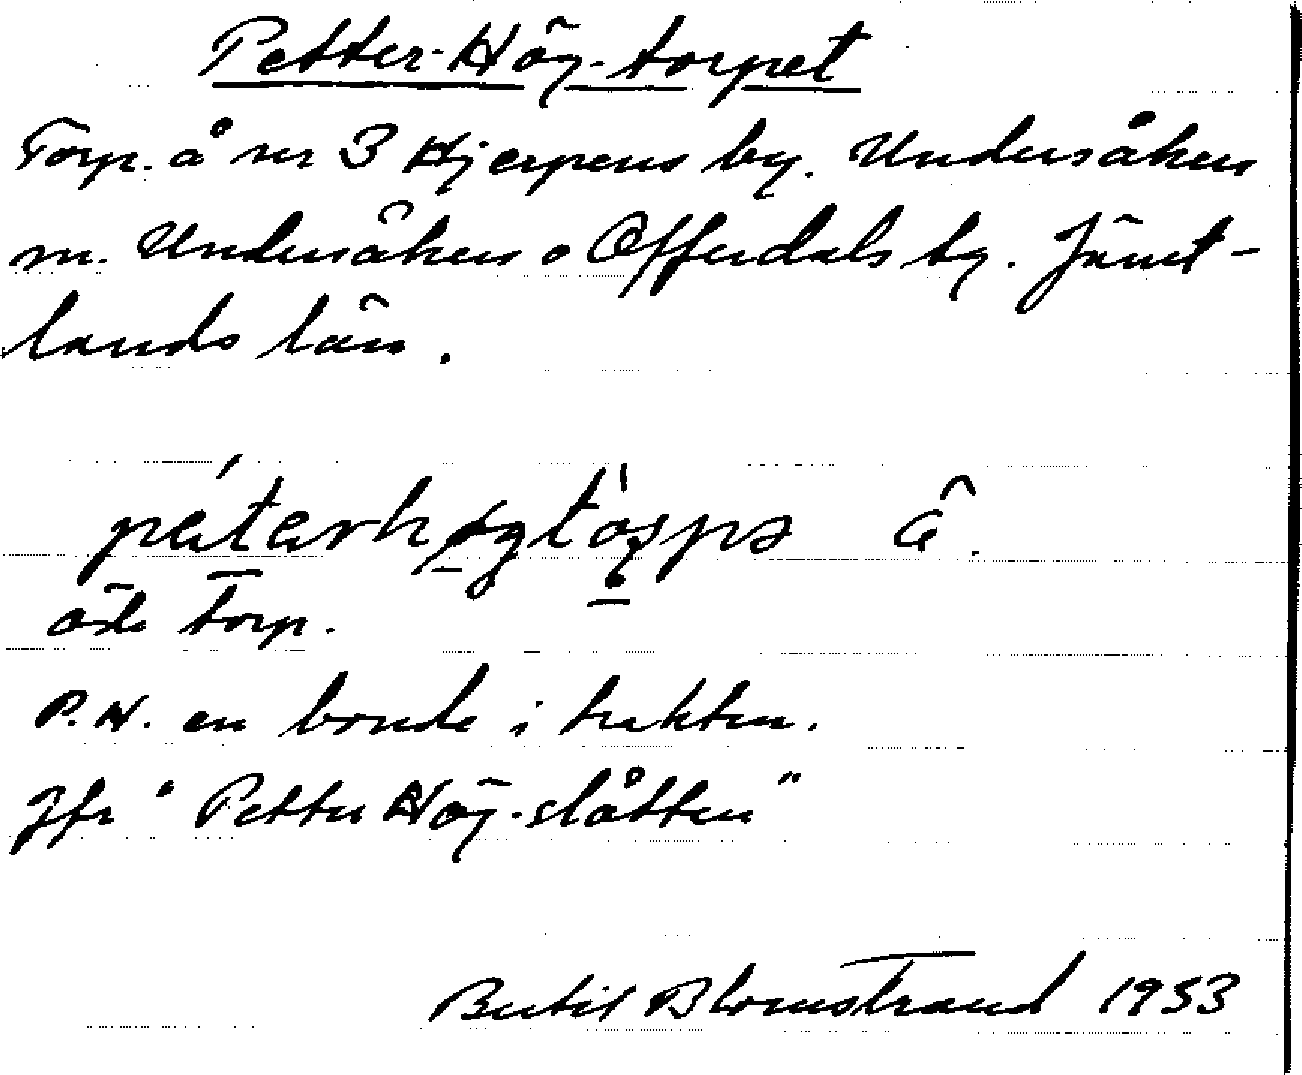 Petter-Hög-torpet
Torp. å nr 3 Hjerpens by. Undersåkers
m. Undersåkers o Offerdals tg. Jämt-
lands län.
öde torp.
P.H. en bonde i trakten.
Jfr "Petter Hög-slåtten"
Bertil Blomstrand 1933